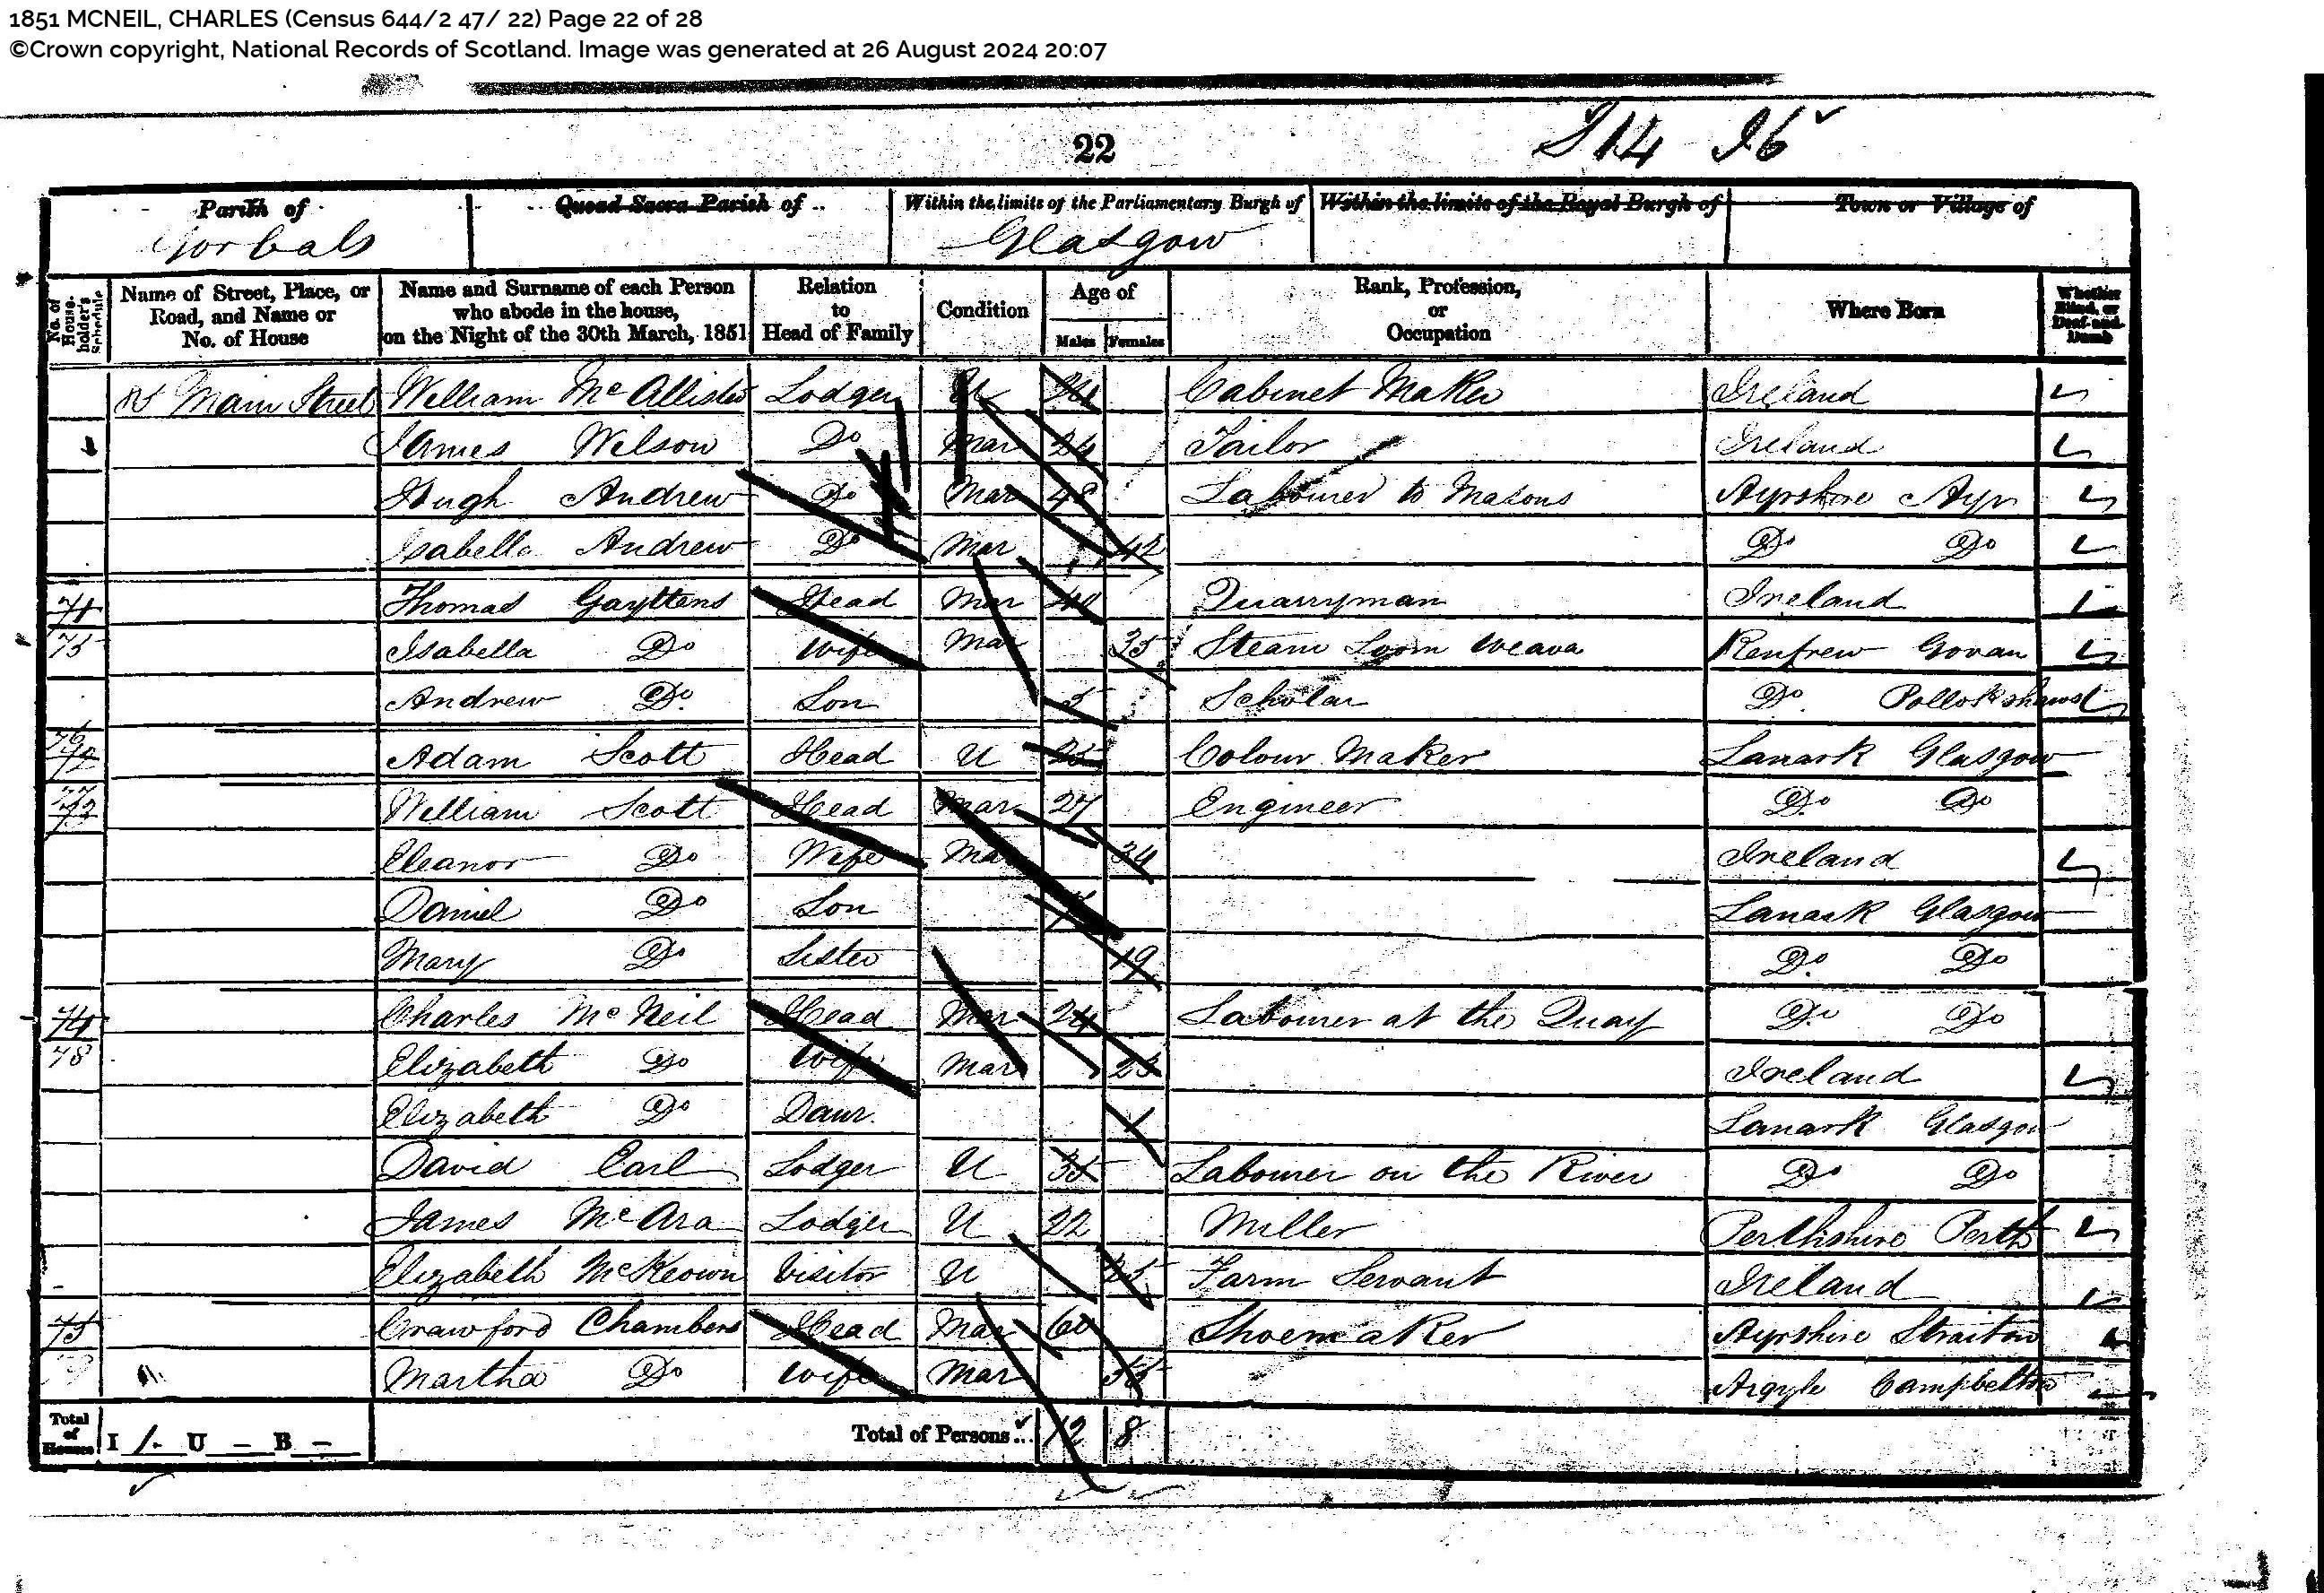 1851 MCNEIL, CHARLES (Census 644/2 47/ 22) Page 22 of 28
©Crown copyright, National Records of Scotland. Image was generated at 26 August 2024 20:07
22
Parish of Gorbals
Quoad Sacra Parish of
Within the limits of the Parliamentary Burgh of Glasgow
Within the limits of the Royal Burgh of
Town or Village of
No. of House-holders Schedule
Name of Street, Place, or Road, and Name or No. of House
Name and Surname of each Person who abode in the house, on the Night of the 30th March, 1851
Relation to Head of Family
Condition
Age of
Males Females
Rank, Profession, or Occupation
Where Born
Whether Blind, or Deaf-and-Dumb
Main Street William McAllister Lodger U 24 Cabinet Maker Ireland
James Wilson Do Mar 24 Tailor Ireland
Hugh Andrew Do Mar 48 Labourer to Masons Ayrshire Ayr
Isabella Andrew Do Mar 42 Do Do
71 Thomas Gayttens Head Mar 40 Quarryman Ireland
75 Isabella Do Wife Mar 35 Steam Loom Weaver Renfrew Govan
Andrew Do Son 5 Scholar Do Pollokshaws
76 72 Adam Scott Head U 25 Colour Maker Lanark Glasgow
77 73 William Scott Head Mar 27 Engineer Do Do
Eleanor Do Wife Mar 34 Ireland
Daniel Do Son Lanark Glasgow
Mary Do Sister 19 Do Do
74 Charles McNeil Head Mar 24 Labourer at the Quay Do Do
78 Elizabeth Do Wife Mar 23 Ireland
Elizabeth Do Daur. 1 Lanark Glasgow
David Earl Lodger U 35 Labourer on the River Do Do
James McAra Lodger U 22 Miller Perthshire Perth
Elizabeth McKeown Visitor U 25 Farm Servant Ireland
75 Crawford Chambers Head Mar 60 Shoemaker Ayrshire Straiton
Martha Do Wife Mar 55 Argyle Campbelton
Total of Houses I 1. U – B –
Total of Persons... 12 8